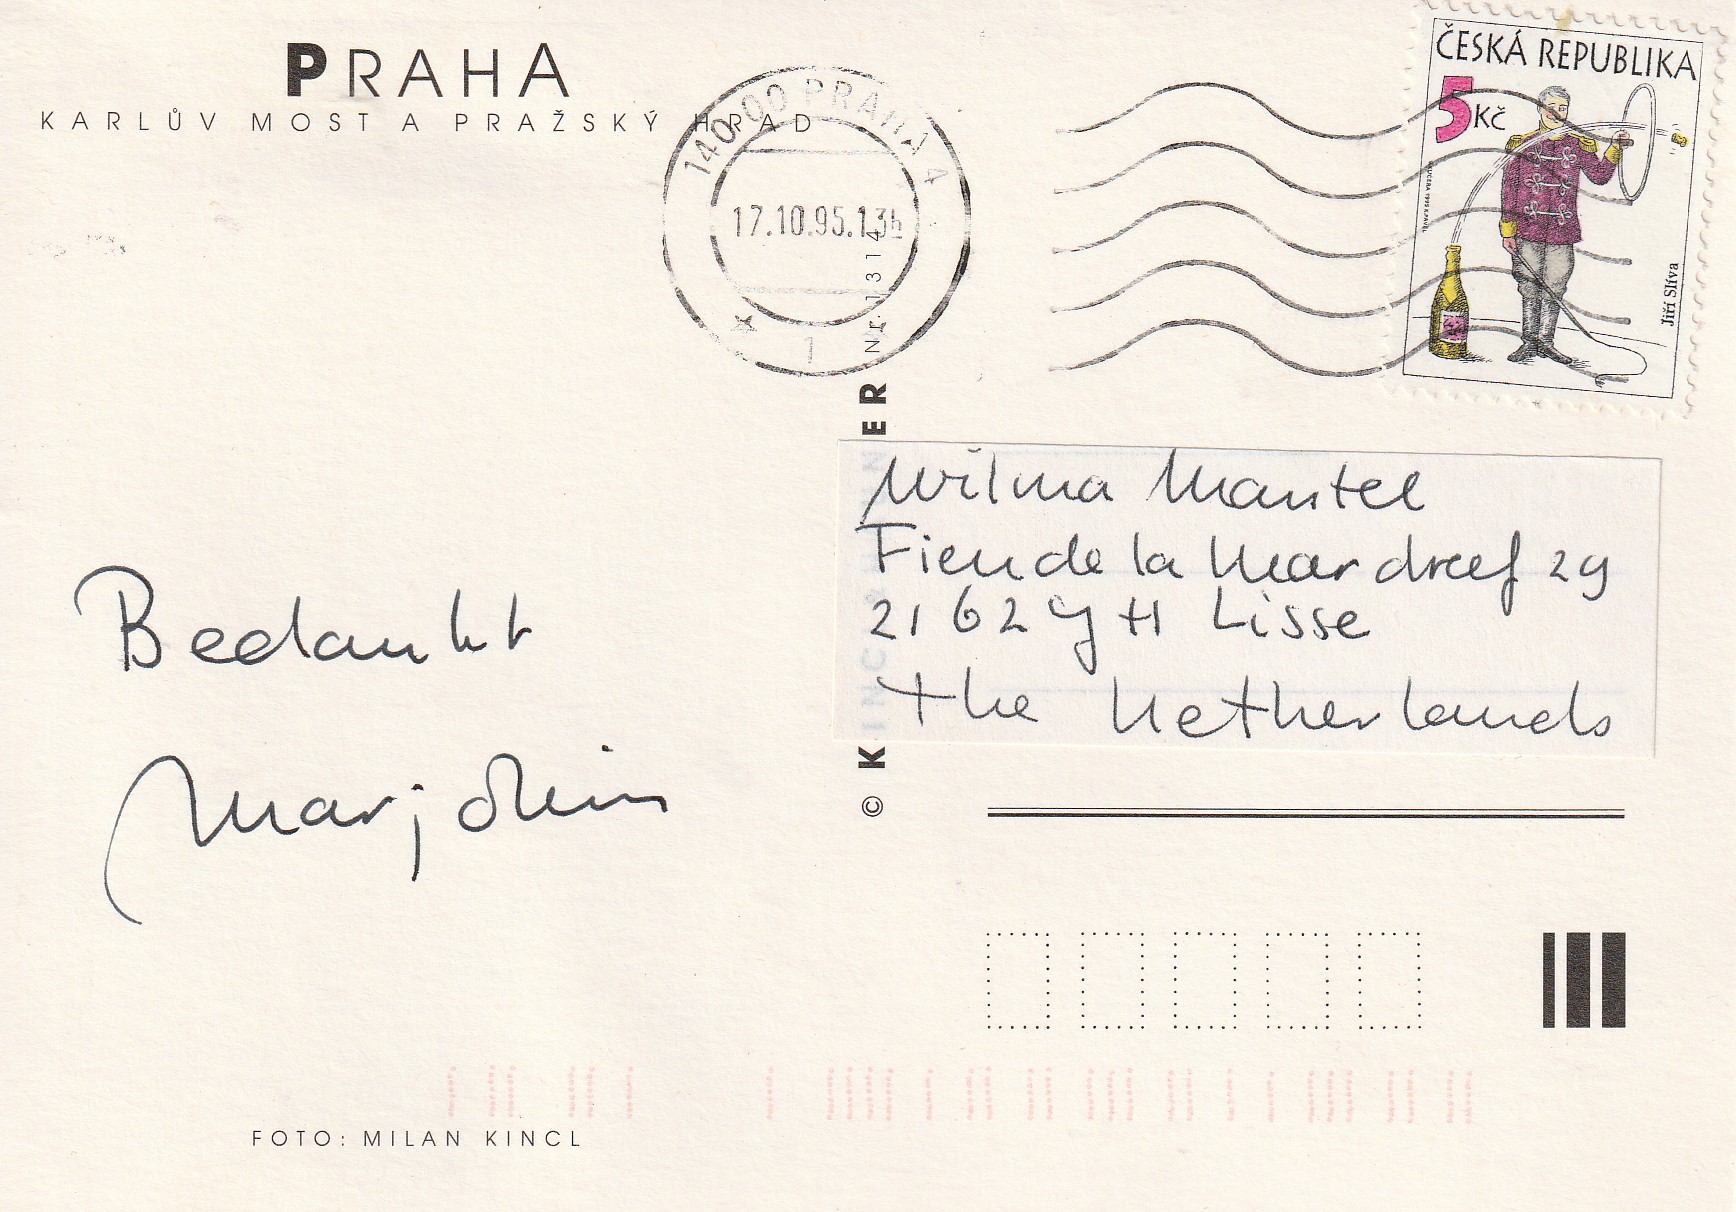 PRAHA
KARLŮV MOST A PRAŽSKÝ HRAD
140 00 PRAHA 4
17.10.95.13h
1
ČESKÁ REPUBLIKA
5 Kč
Jiří Slíva
Bedankt
Marjolein
Wilma Mantel
Fien de la Mardreef 29
2162 YH Lisse
the Netherlands
© K
ER
Nr. 1314
FOTO: MILAN KINCL